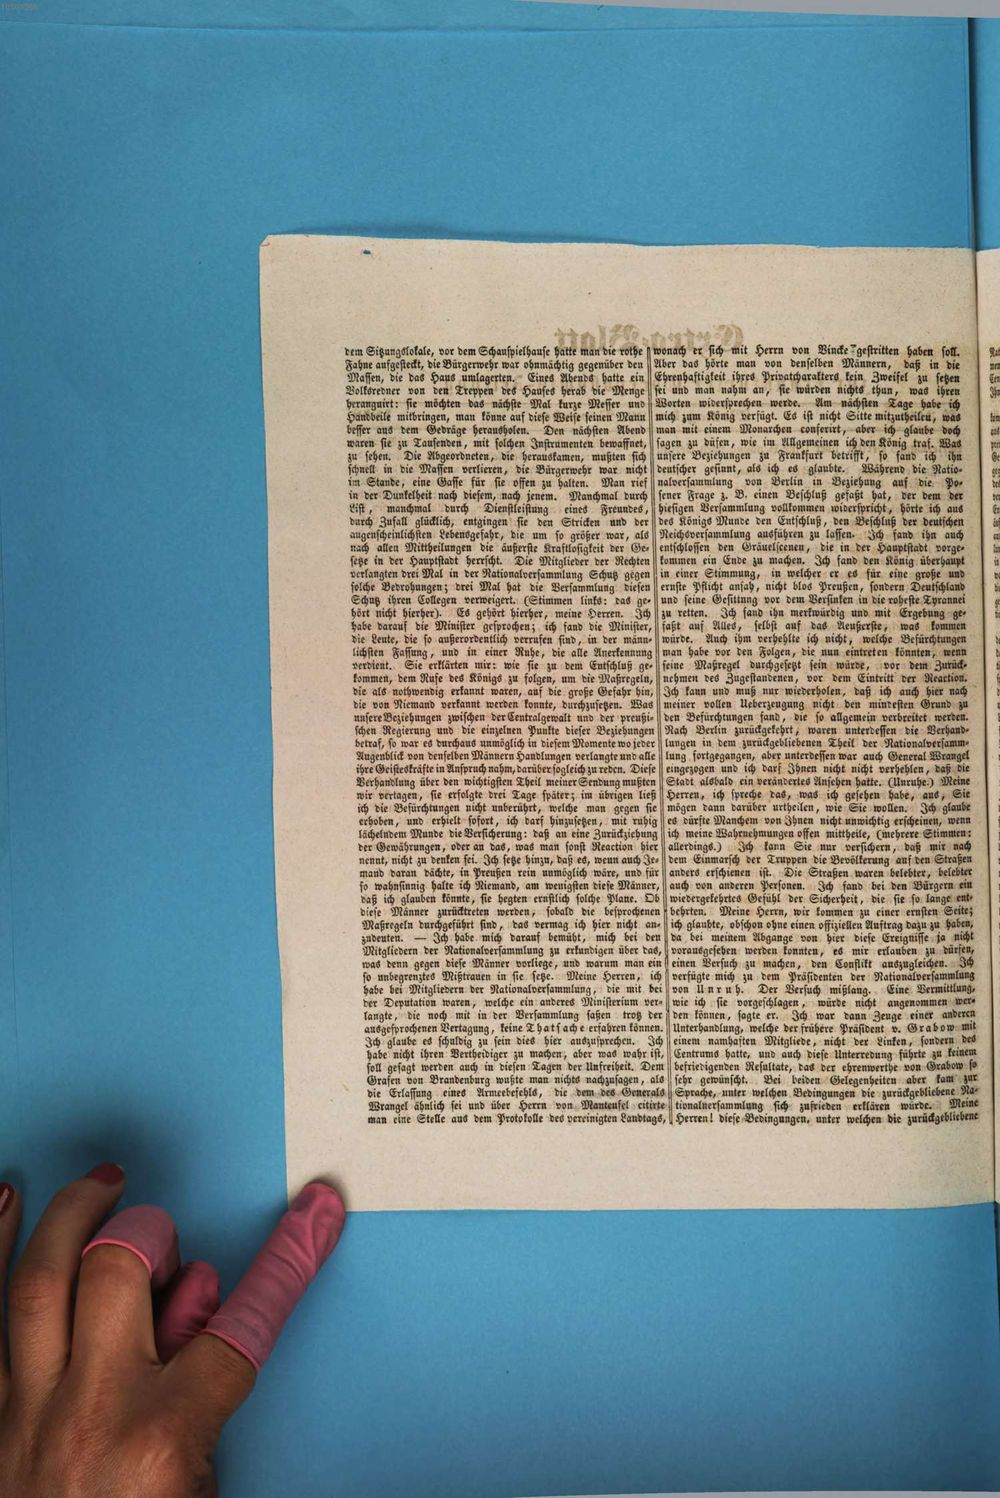 dem Sitzungslokale, vor dem Schauspielhause hatte man die rothe
Fahne aufgesteckt, die Bürgerwehr war ohnmächtig gegenüber den
Massen, die das Haus umlagerten. Eines Abends hatte ein
Volksredner von den Treppen des Hauses herab die Menge
haranguirt: sie möchten das nächste Mal kurze Messer und
Handbeile mitbringen, man könne auf diese Weise seinen Mann
besser aus dem Gedräge herausholen. Den nächsten Abend
waren sie zu Tausenden, mit solchen Instrumenten bewaffnet,
zu sehen. Die Abgeordneten, die herauskamen, mußten sich
schnell in die Massen verlieren, die Bürgerwehr war nicht
im Stande, eine Gasse für sie offen zu halten. Man rief
in der Dunkelheit nach diesem, nach jenem. Manchmal durch
List, manchmal durch Dienstleistung eines Freundes,
durch Zufall glücklich, entgingen sie den Stricken und der
augenscheinlichsten Lebensgefahr, die um so größer war, als
nach allen Mittheilungen die äußerste Kraftlosigkeit der Ge-
setze in der Hauptstadt herrscht. Die Mitglieder der Rechten
verlangten drei Mal in der Nationalversammlung Schutz gegen
solche Bedrohungen; drei Mal hat die Versammlung diesen
Schutz ihren Collegen verweigert. (Stimmen links: das ge-
hört nicht hierher). Es gehört hierher, meine Herren. Ich
habe darauf die Minister gesprochen; ich fand die Minister,
die Leute, die so außerordentlich verrufen sind, in der männ-
lichsten Fassung, und in einer Ruhe, die alle Anerkennung
verdient. Sie erklärten mir: wie sie zu dem Entschluß ge-
kommen, dem Rufe des Königs zu folgen, um die Maßregeln,
die als nothwendig erkannt waren, auf die große Gefahr hin,
die von Niemand verkannt werden konnte, durchzusetzen. Was
unsere Beziehungen zwischen der Centralgewalt und der preußi-
schen Regierung und die einzelnen Punkte dieser Beziehungen
betraf, so war es durchaus unmöglich in diesem Momente wo jeder
Augenblick von denselben Männern Handlungen verlangte und alle
ihre Geisteskräfte in Anspruch nahm, darüber sogleich zu reden. Diese
Verhandlung über den wichtigsten Theil meiner Sendung mußten
wir vertagen, sie erfolgte drei Tage später; im übrigen ließ
ich die Befürchtungen nicht unberührt, welche man gegen sie
erhoben, und erhielt sofort, ich darf hinzusetzen, mit ruhig
lächelndem Munde die Versicherung: daß an eine Zurückziehung
der Gewährungen, oder an das, was man sonst Reaction hier
nennt, nicht zu denken sei. Ich setze hinzu, daß es, wenn auch Je-
mand daran dächte, in Preußen rein unmöglich wäre, und für
so wahnsinnig halte ich Niemand, am wenigsten diese Männer,
daß ich glauben könnte, sie hegten ernstlich solche Plane. Ob
diese Männer zurücktreten werden, sobald die besprochenen
Maßregeln durchgeführt sind, das vermag ich hier nicht an-
zudeuten. — Ich habe mich darauf bemüht, mich bei den
Mitgliedern der Nationalversammlung zu erkundigen über das,
was denn gegen diese Männer vorliege, und warum man ein
so unbegrenztes Mißtrauen in sie setze. Meine Herren, ich
habe bei Mitgliedern der Nationalversammlung, die mit bei
der Deputation waren, welche ein anderes Ministerium ver-
langte, die noch mit in der Versammlung saßen trotz der
ausgesprochenen Vertagung, keine Thatsache erfahren können.
Ich glaube es schuldig zu sein dies hier auszusprechen. Ich
habe nicht ihren Vertheidiger zu machen, aber was wahr ist,
soll gesagt werden auch in diesen Tagen der Unfreiheit. Dem
Grafen von Brandenburg wußte man nichts nachzusagen, als
die Erlassung eines Armeebefehls, die dem des Generals
Wrangel ähnlich sei und über Herrn von Manteufel citirte
man eine Stelle aus dem Protokolle des vereinigten Landtags,
wonach er sich mit Herrn von Vincke gestritten haben soll.
Aber das hörte man von denselben Männern, daß in die
Ehrenhaftigkeit ihres Privatcharakters kein Zweifel zu setzen
sei und man nahm an, sie würden nichts thun, was ihren
Worten widersprechen werde. Am nächsten Tage habe ich
mich zum König verfügt. Es ist nicht Sitte mitzutheilen, was
man mit einem Monarchen conferirt, aber ich glaube doch
sagen zu düfen, wie im Allgemeinen ich den König traf. Was
unsere Beziehungen zu Frankfurt betrifft, so fand ich ihn
deutscher gesinnt, als ich es glaubte. Während die Natio-
nalversammlung von Berlin in Beziehung auf die Po-
sener Frage z. B. einen Beschluß gefaßt hat, der dem der
hiesigen Versammlung vollkommen widerspricht, hörte ich aus
des Königs Munde den Entschluß, den Beschluß der deutschen
Reichsversammlung ausführen zu lassen. Ich fand ihn auch
entschlossen den Gräuelscenen, die in der Hauptstadt vorge-
kommen ein Ende zu machen. Ich fand den König überhaupt
in einer Stimmung, in welcher er es für eine große und
ernste Pflicht ansah, nicht blos Preußen, sondern Deutschland
und seine Gesittung vor dem Versinken in die roheste Tyrannei
zu retten. Ich fand ihn merkwürdig und mit Ergebung ge-
faßt auf Alles, selbst auf das Aeußerste, was kommen
würde. Auch ihm verhehlte ich nicht, welche Befürchtungen
man habe vor den Folgen, die nun eintreten könnten, wenn
seine Maßregel durchgesetzt sein würde, vor dem Zurück-
nehmen des Zugestandenen, vor dem Eintritt der Reaction.
Ich kann und muß nur wiederholen, daß ich auch hier nach
meiner vollen Ueberzeugung nicht den mindesten Grund zu
den Befürchtungen fand, die so allgemein verbreitet werden.
Nach Berlin zurückgekehrt, waren unterdessen die Verhand-
lungen in dem zurückgebliebenen Theil der Nationalversamm-
lung fortgegangen, aber unterdessen war auch General Wrangel
eingezogen und ich darf Ihnen nicht nicht verhehlen, daß die
Stadt alsbald ein verändertes Ansehen hatte. (Unruhe.) Meine
Herren, ich spreche das, was ich gesehen habe, aus, Sie
mögen dann darüber urtheilen, wie Sie wollen. Ich glaube
es dürfte Manchem von Ihnen nicht unwichtig erscheinen, wenn
ich meine Wahrnehmungen offen mittheile, (mehrere Stimmen:
allerdings.) Ich kann Sie nur versichern, daß mir nach
dem Einmarsch der Truppen die Bevölkerung auf den Straßen
anders erschienen ist. Die Straßen waren belebter, belebter
auch von anderen Personen. Ich fand bei den Bürgern ein
wiedergekehrtes Gefühl der Sicherheit, die sie so lange ent-
behrten. Meine Herrn, wir kommen zu einer ernsten Seite;
ich glaubte, obschon ohne einen offiziellen Auftrag dazu zu haben,
da bei meinem Abgange von hier diese Ereignisse ja nicht
vorausgesehen werden konnten, es mir erlauben zu dürfen,
einen Versuch zu machen, den Conflikt auszugleichen. Ich
verfügte mich zu dem Präsidenten der Nationalversammlung
von Unruh. Der Versuch mißlang. Eine Vermittlung,
wie ich sie vorgeschlagen, würde nicht angenommen wer-
den können, sagte er. Ich war dann Zeuge einer anderen
Unterhandlung, welche der frühere Präsident v. Grabow mit
einem namhaften Mitgliede, nicht der Linken, sondern des
Centrums hatte, und auch diese Unterredung führte zu keinem
befriedigenden Resultate, das der ehrenwerthe von Grabow so
sehr gewünscht. Bei beiden Gelegenheiten aber kam zur
Sprache, unter welchen Bedingungen die zurückgebliebene Na-
tionalnersammlung sich zufrieden erklären würde. Meine
Herren! diese Bedingungen, unter welchen die zurückgebliebene